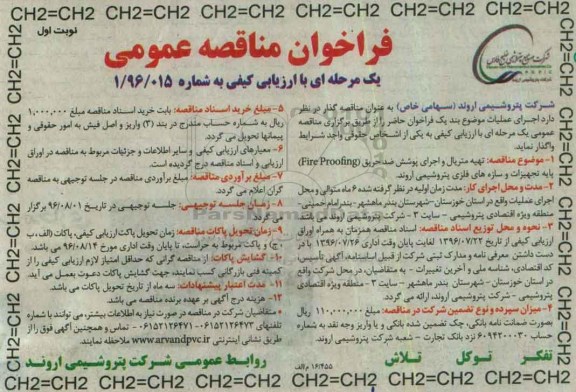 CH2=CH2 CH2=CH2 CH2=CH2 CH2=CH2 CH2=CH2 CH2=CH2
نوبت اول
فراخوان مناقصه عمومی
یک مرحله ای با ارزیابی کیفی به شماره ۱/۹۶/۰۱۵
شرکت پتروشیمی اروند (سهامی خاص) به عنوان مناقصه گذار در نظر
دارد اجرای عملیات موضوع بند یک فراخوان حاضر را از طریق برگزاری مناقصه
عمومی یک مرحله ای با ارزیابی کیفی به یکی از اشخاص حقوقی واجد شرایط
واگذار نماید.
۱- موضوع مناقصه: تهیه متریال و اجرای پوشش ضدحریق (Fire Proofing)
پایه تجهیزات و سازه های فلزی پتروشیمی اروند.
۲- مدت و محل اجرای کار: مدت زمان اولیه در نظر گرفته شده ۶ ماه متوالی و محل
اجرای عملیات واقع در استان خوزستان -شهرستان بندر ماهشهر - بندر امام خمینی-
منطقه ویژه اقتصادی پتروشیمی - سایت ۳ - شرکت پتروشیمی اروند
۳- نحوه و محل توزیع اسناد مناقصه: اسناد مناقصه همزمان به همراه اوراق
ارزیابی کیفی از تاریخ ۱۳۹۶/۰۷/۲۲ لغایت پایان وقت اداری ۱۳۹۶/۰۷/۲۶ با در
دست داشتن معرفی نامه و مدارک ثبتی شرکت از قبیل اساسنامه، آگهی تأسیس،
کد اقتصادی، شناسه ملی و آخرین تغییرات - به متقاضیان، در محل شرکت واقع
در استان خوزستان - شهرستان بندر ماهشهر - سایت ۳ - منطقه ویژه اقتصادی
پتروشیمی - شرکت پتروشیمی اروند، ارائه می گردد.
۴- میزان سپرده و نوع تضمین شرکت در مناقصه: مبلغ ۱۱۰,۰۰۰,۰۰۰ ریال
بصورت ضمانت نامه بانکی، چک تضمین شده بانکی و یا واریز وجه نقد به شماره
حساب ۶۰۹۴۲۰۰۳۰ نزد بانک تجارت - شعبه شرکت پتروشیمی اروند
۵- مبلغ خرید اسناد مناقصه: بابت خرید اسناد مناقصه مبلغ ۱,۰۰۰,۰۰۰
ریال به شماره حساب مندرج در بند (۴) واریز و اصل فیش به امور حقوقی و
پیمانها تحویل می گردد.
۶- معیارهای ارزیابی کیفی و سایر اطلاعات و جزئیات مربوط به مناقصه در اوراق
ارزیابی و اسناد مناقصه درج گردیده است.
۷- مبلغ برآوردی مناقصه: مبلغ برآوردی مناقصه در جلسه توجیهی به مناقصه
گران اعلام می گردد.
۸- زمان جلسه توجیهی: جلسه توجیهی در تاریخ ۹۶/۰۸/۰۱ برگزار
می گردد.
۹- زمان تحویل پاکات مناقصه: زمان تحویل پاکت ارزیابی کیفی، پاکات (الف، ب
،ج) و پاکت مربوط به حراست، تا پایان وقت اداری مورخ ۹۶/۰۸/۱۴ می باشد.
۱۰- گشایش پاکات: از مناقصه گرانی که حداقل امتیاز لازم ارزیابی کیفی را از
کمیته فنی بازرگانی کسب نمایند، جهت گشایش پاکات دعوت بعمل می آید.
۱۱- مدت اعتبار پیشنهادات: سه ماه از تاریخ تحویل پاکات می باشد.
۱۲- هزینه درج آگهی بر عهده برنده مناقصه می باشد.
متقاضیان شرکت در مناقصه در صورت نیاز به اطلاعات بیشتر، می توانند با شماره
تلفنهای ۰۶۱۵۲۱۲۶۴۷۳-۰۶۱۵۲۱۲۶۴۷۱ - تماس و همچنین آگهی فوق را از
طریق نشانی اینترنتی www.arvandpvc.ir ملاحظه نمایند.
تفکر توکل تلاش
۱۶/۴۵۵ م الف
روابط عمومی شرکت پتروشیمی اروند
CH2=CH2 CH2=CH2 CH2=CH2 CH2=CH2 CH2=CH2 CH2=CH2